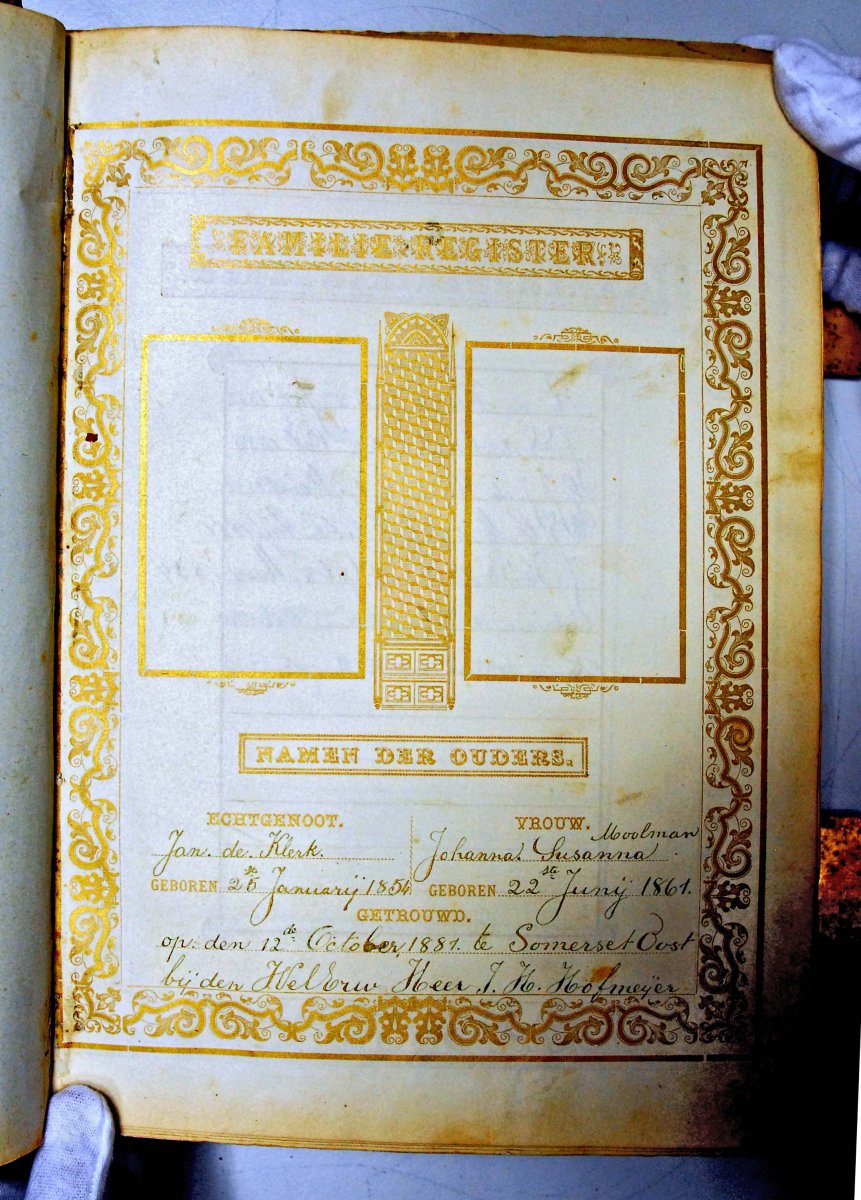 FAMILIE-REGISTER.
NAMEN DER OUDERS.
ECHTGENOOT.
Jan de Klerk.
GEBOREN 25ste Januarij 1854
VROUW.
Moolman
Johanna Susanna
GEBOREN 22ste Junij 1861.
GETROUWD.
op den 12de October, 1881. te Somerset Oost
bij den WelEruw Heer J. H. Hofmeijer